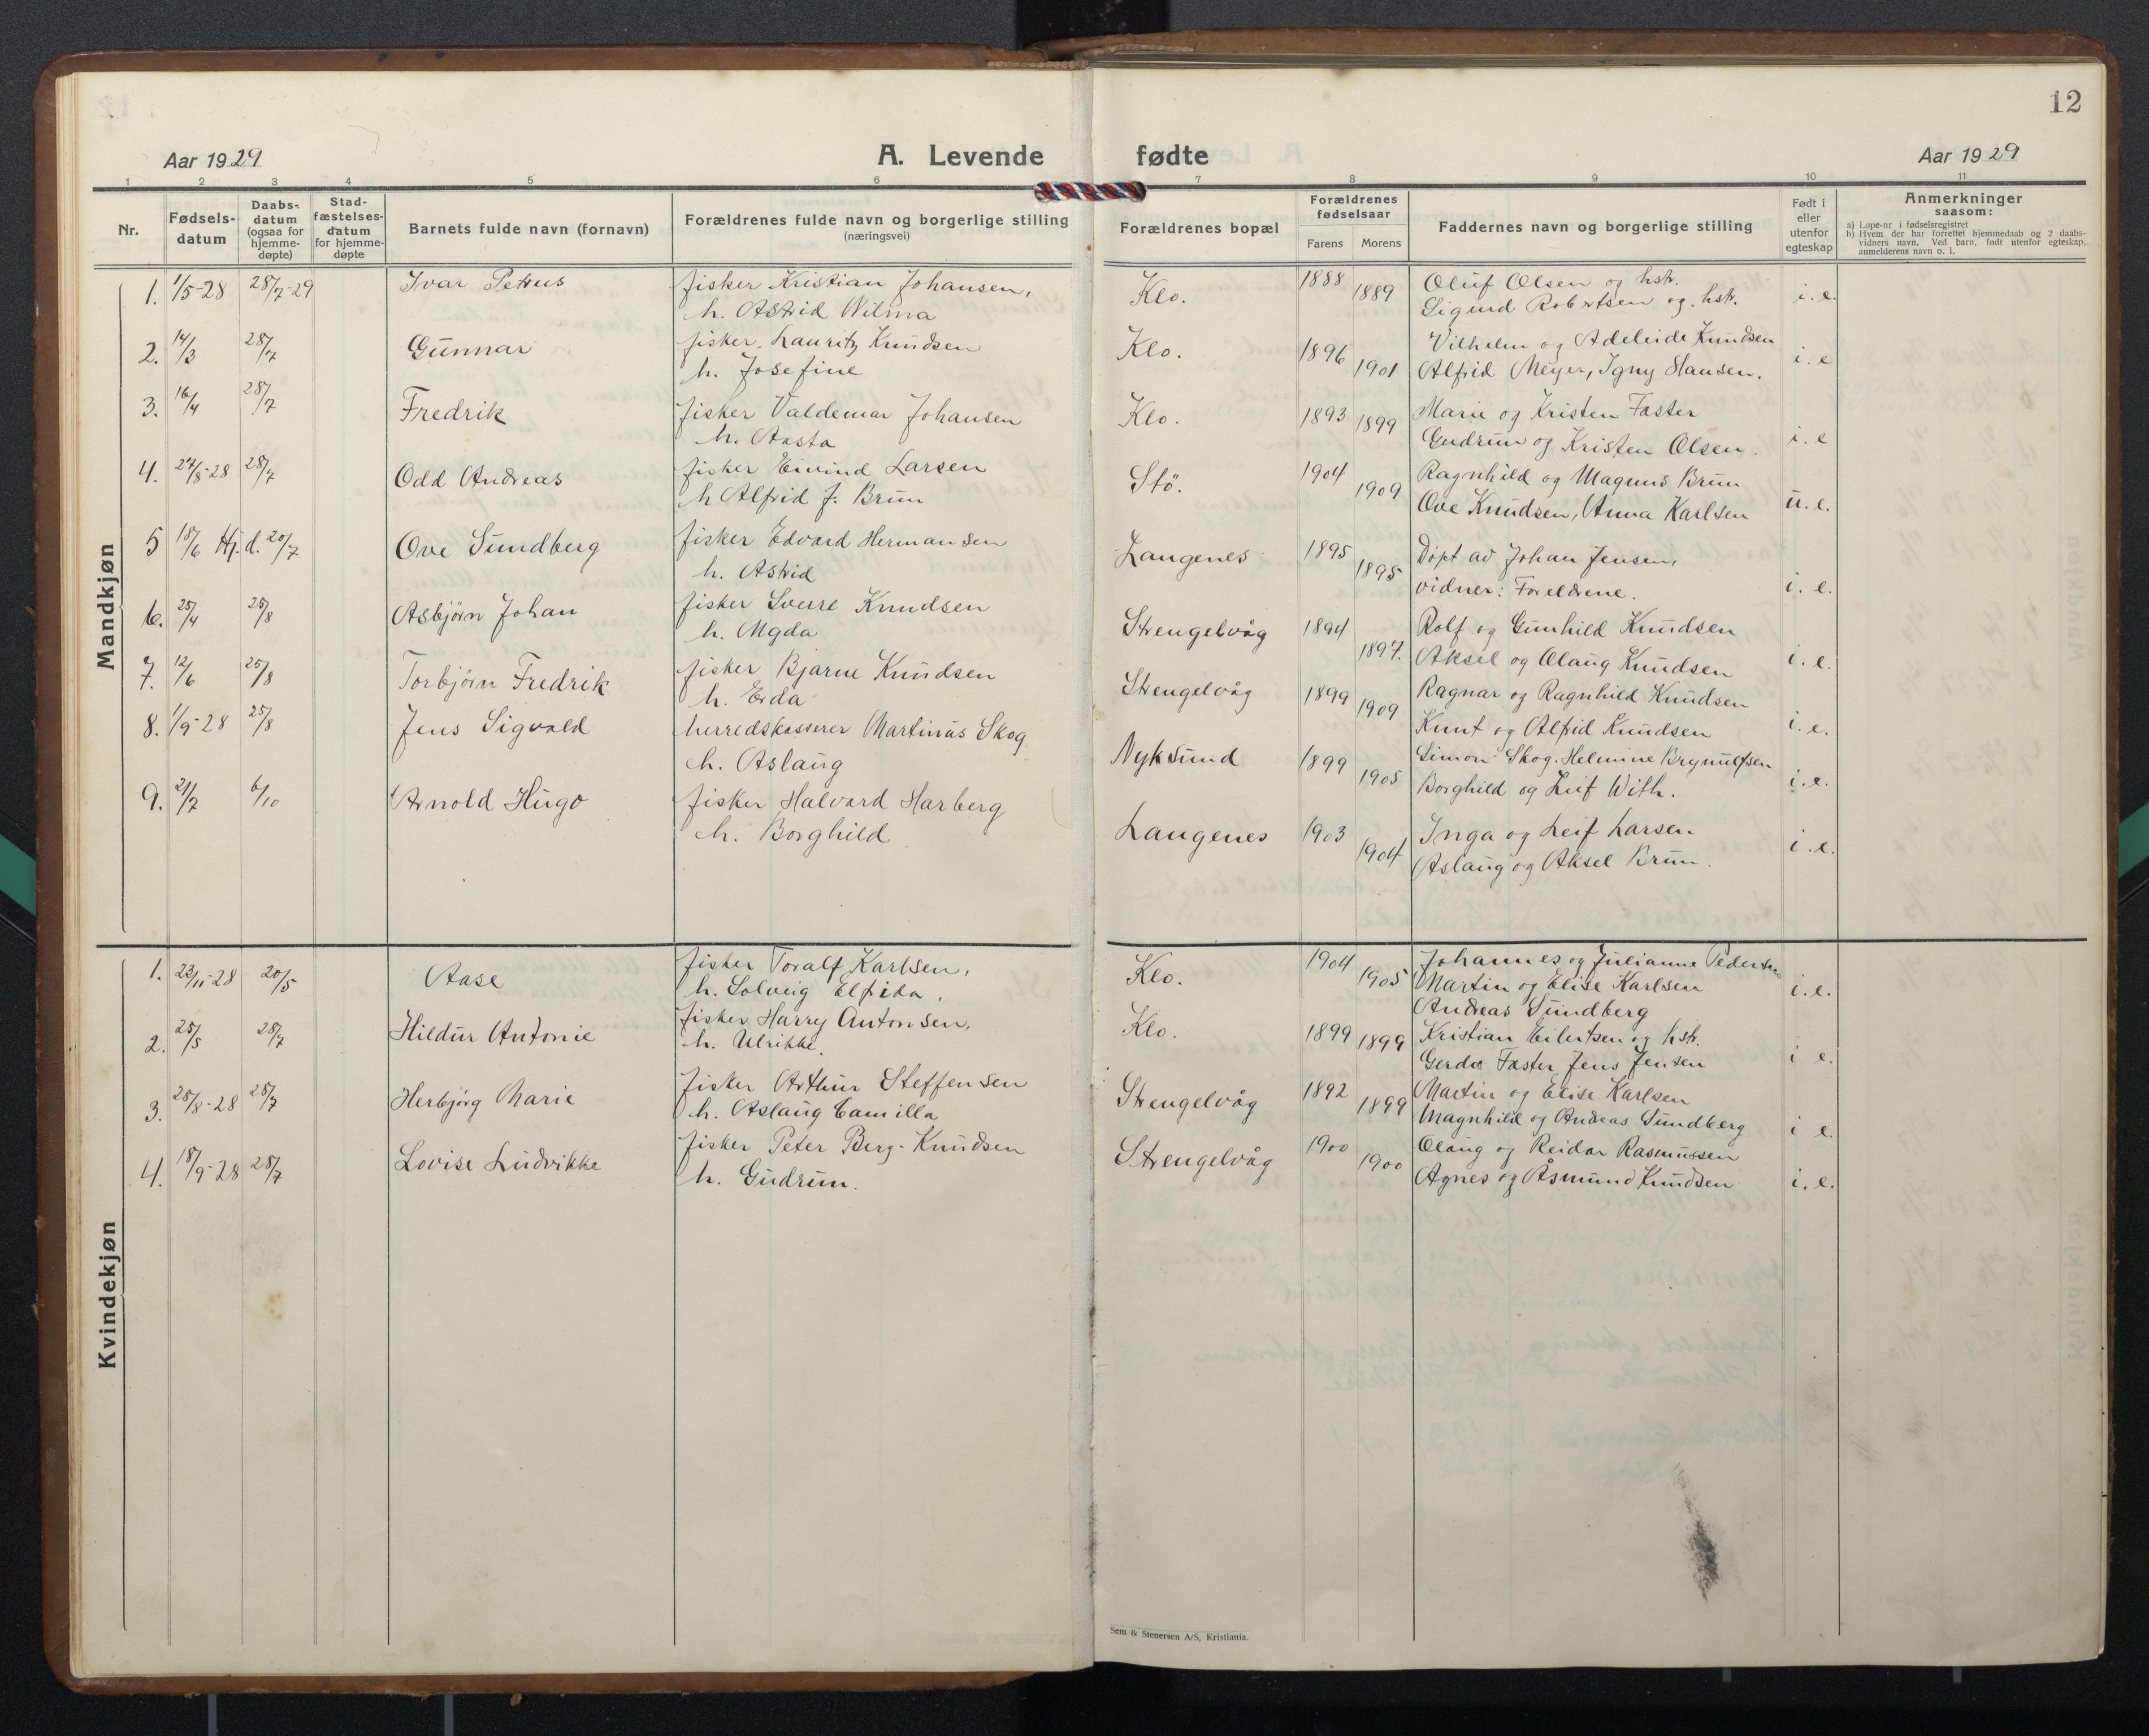 12
Aar 1929
A. Levende
fødte
Aar 1929
1 2 3 4 5 6 7 8 9 10 11
Nr.
Fødsels-datum
Daabs-datum (ogsaa for hjemme-døpte)
Stad-fæstelses-datum for hjemme-døpte
Barnets fulde navn (fornavn)
Forældrenes fulde navn og borgerlige stilling
(næringsvei)
Forældrenes bopæl
Forældrenes fødselsaar
Farens Morens
Faddernes navn og borgerlige stilling
Født i eller utenfor egteskap
Anmerkninger
saasom:
a) Løpe-nr i fødselsregistret
b) Hvem der har forrettet hjemmedaab og 2 daabs-vidners navn. Ved barn, født utenfor egteskap, anmelderens navn o. l.
Mandkjøn
1. 1/5-28 28/7-29 Ivar Petrus fisker Kristian Johansen, Klo. 1888 1889 Oluf Olsen og hstr. i. e.
h. Astrid Wilma Sigurd Robertsen og hstr.
2. 14/3 28/7 Gunnar fisker Lauritz Knudsen Klo. 1896 1901 Vilhelm og Adeleide Knudsen i. e
h. Josefine Alfrid Meyer, Igny Hansen.
3. 16/4 28/7 Fredrik fisker Valdemar Johansen Klo. 1893 1899 Marie og Kristen Faster i. e
h. Aasta Gudrun og Kristen Olsen.
4. 27/8-28 28/7 Odd Andreas fisker Eivind Larsen Stö. 1904 1909 Ragnhild og Magnus Brun u. e.
h Alfrid J. Brun Ove Knudsen, Anna Karlsen
5 18/6 Hj. d. 20/7 Ove Sundberg fisker Edvard Hermansen Langenes 1895 1895 Döpt av Johan Jensen, i. e.
h. Astrid vidner: Foreldrene.
6. 25/4 25/8 Asbjörn Johan fisker Sverre Knudsen Strengelvåg 1894 1897. Rolf og Gunhild Knudsen i. e.
h. Magda Aksel og Olaug Knudsen
7. 12/6 25/8 Torbjörn Fredrik fisker Bjarne Knudsen Strengelvåg 1899 1909 Ragnar og Ragnhild Knudsen i. e.
h. Erda Knut og Alfrid Knudsen
8. 1/9-28 25/8 Jens Sigvald herredskasserer Martinus Skog Nyksund 1899 1905 Simon Skog. Helmine Brynulfsen i. e.
h. Aslaug Borghild og Leif With.
9. 21/7 6/10 Arnold Hugo fisker Halvard Harberg Langenes 1903 1904 Inga og Leif Larsen i. e.
h. Borghild Aslaug og Aksel Brun.
Kvindekjøn
1. 23/11-28 20/5 Aase fisker Toralf Karlsen, Klo. 1904 1905 Johannes og Julianne Pedersen i. e.
h. Solveig Elfrida. Martin og Elise Karlsen
Andreas Sundberg
2. 25/5 28/7 Hildur Antonie fisker Harry Antonsen, Klo. 1899 1899 Kristian Eilertsen og hstr. i e.
h. Ulrikke. Gerda Faster Jens Jensen
3. 28/8-28 28/7 Herbjörg Marie fisker Arthur Steffensen Strengelvåg 1892 1899 Martin og Elise Karlsen i e.
h. Aslaug Camilla Magnhild og Andreas Sundberg
4. 18/9-28 28/7 Lovise Ludvikke fisker Peter Berg-Knudsen Strengelvåg 1900 1900 Olaug og Reidar Rasmussen i. e.
h. Gudrun. Agnes og Åsmund Knudsen
Sem & Stenersen A/S, Kristiania.